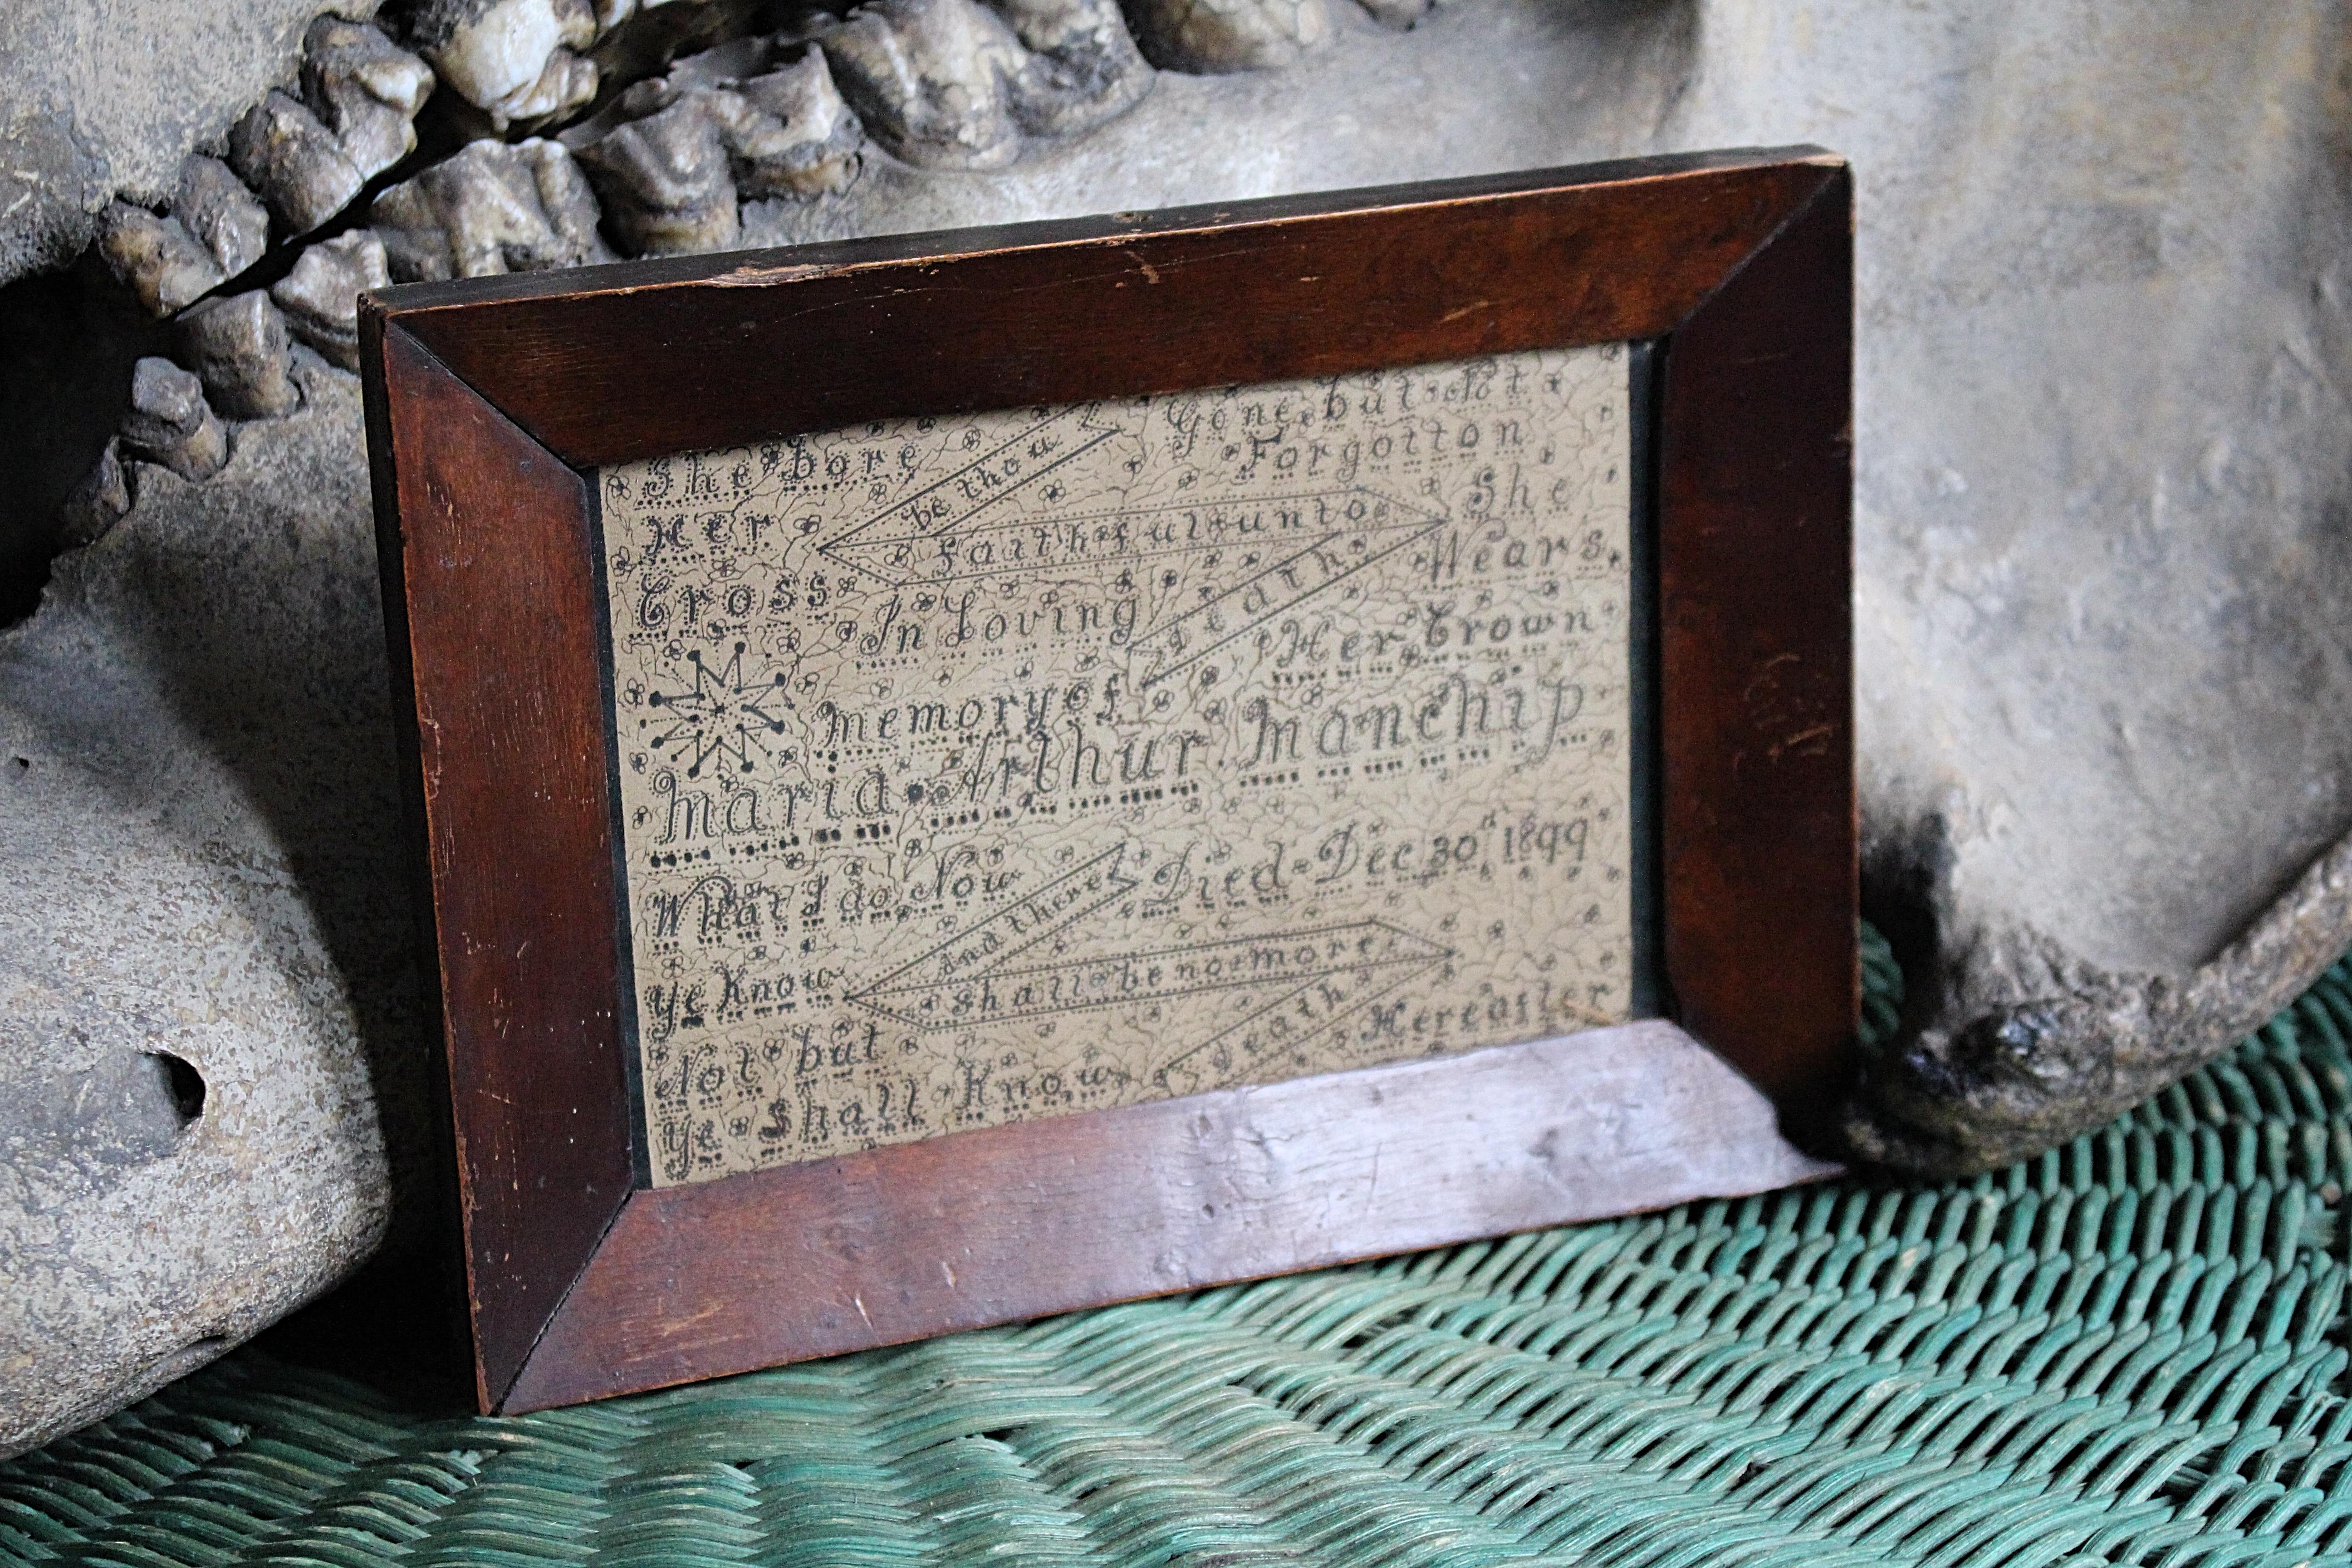 She bore
Her
Cross
be thou
faithful unto
death
Gone but Not
Forgotton
She
Wears
Her Crown
In Loving
Memory of
Maria Arthur Manchip
Died Dec 30" 1899
What I do Now
Ye Know
Not but
Ye Shall Know
Hereafter
And there
shall be no more
death